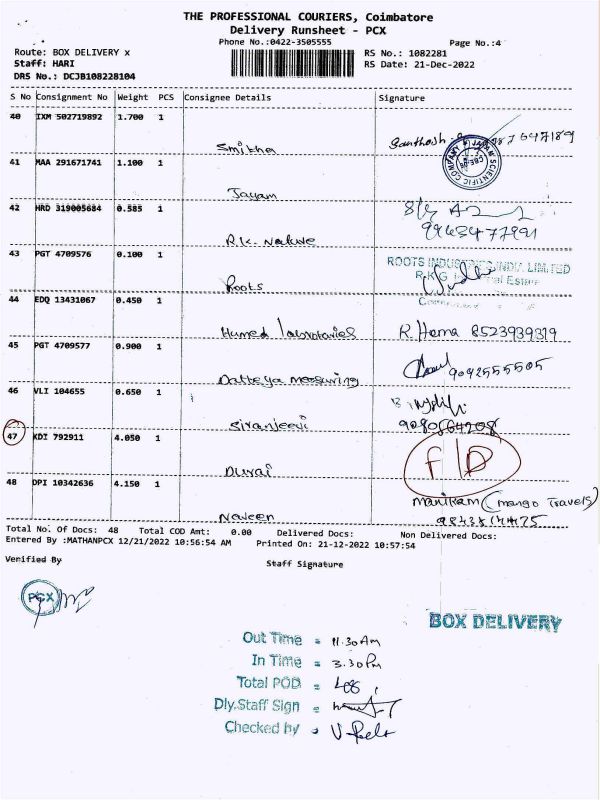 THE PROFESSIONAL COURIERS, Coimbatore
Delivery Runsheet - PCX
Phone No.:0422-3505555
Page No.:4
Route: BOX DELIVERY x
RS No.: 1082281
Staff: HARI
RS Date: 21-Dec-2022
DRS No.: DCJB108228104
S No Consignment No Weight PCS Consignee Details Signature
40 IXM 502719892 1.700 1
Smitha
41 MAA 291671741 1.100 1
Jayam
42 HRD 319005684 0.585 1
R.K. Nature
9943477991
43 PGT 4709576 0.100 1
Roots
ROOTS INDUSTRIES INDIA LIMITED
44 EDQ 13431067 0.450 1
Humed laboratories R. Hema 8523939319
45 PGT 4709577 0.900 1
Datteya measuring 9092555505
46 VLI 104655 0.650 1
Siranjeevi
47 KDI 792911 4.050 1
Durai
F/D
48 DPI 10342636 4.150 1
Naveen
Manikam (mango Travels)
Total No. Of Docs: 48 Total COD Amt: 0.00 Delivered Docs: Non Delivered Docs:
Entered By :MATHANPCX 12/21/2022 10:56:54 AM Printed On: 21-12-2022 10:57:54
Verified By
Staff Signature
PCX
BOX DELIVERY
Out Time = 11.30 Am
In Time = 3.30 Pm
Total POD =
Dly.Staff Sign =
Checked by